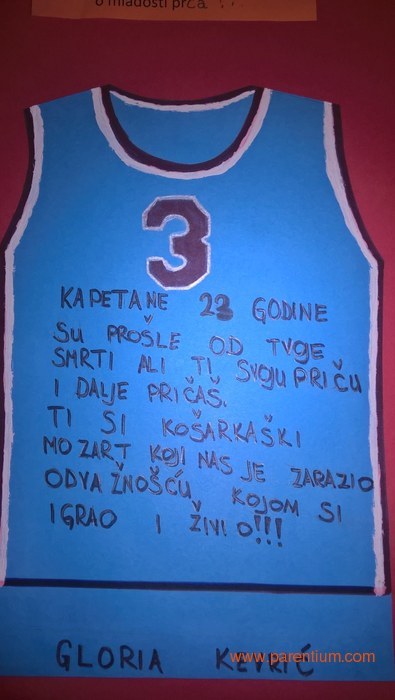 o mladosti prča ...
3
KAPETANE 23 GODINE
SU PROŠLE OD TVOJE
SMRTI ALI TI SVOJU PRIČU
I DALJE PRIČAŠ.
TI SI KOŠARKAŠKI
MOZART KOJI NAS JE ZARAZIO
ODVAŽNOŠĆU KOJOM SI
IGRAO I ŽIVIO!!!
GLORIA
www.parentium.com